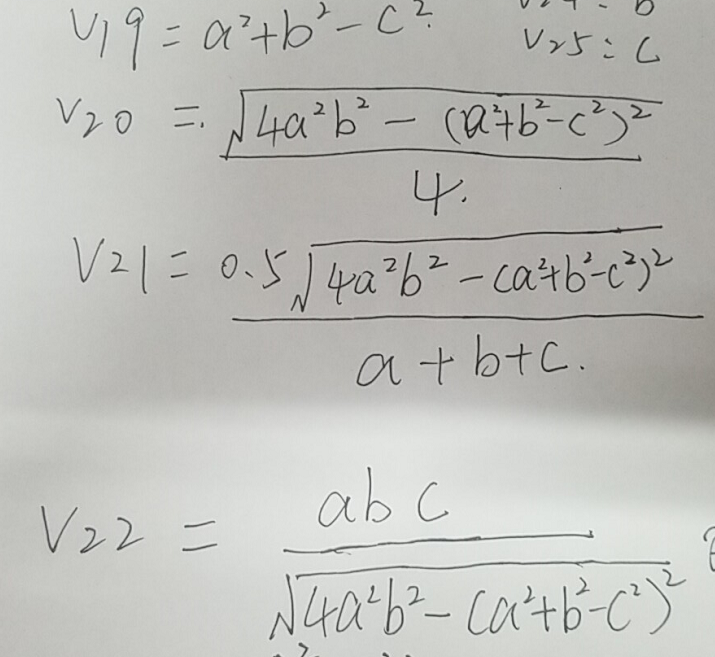 V19 = a²+b²-c²
V25 = c
V20 = √(4a²b² - (a²+b²-c²)²) / 4.
V21 = 0.5√(4a²b² - (a²+b²-c²)²) / a+b+c.
V22 = abc / √(4a²b² - (a²+b²-c²)²)